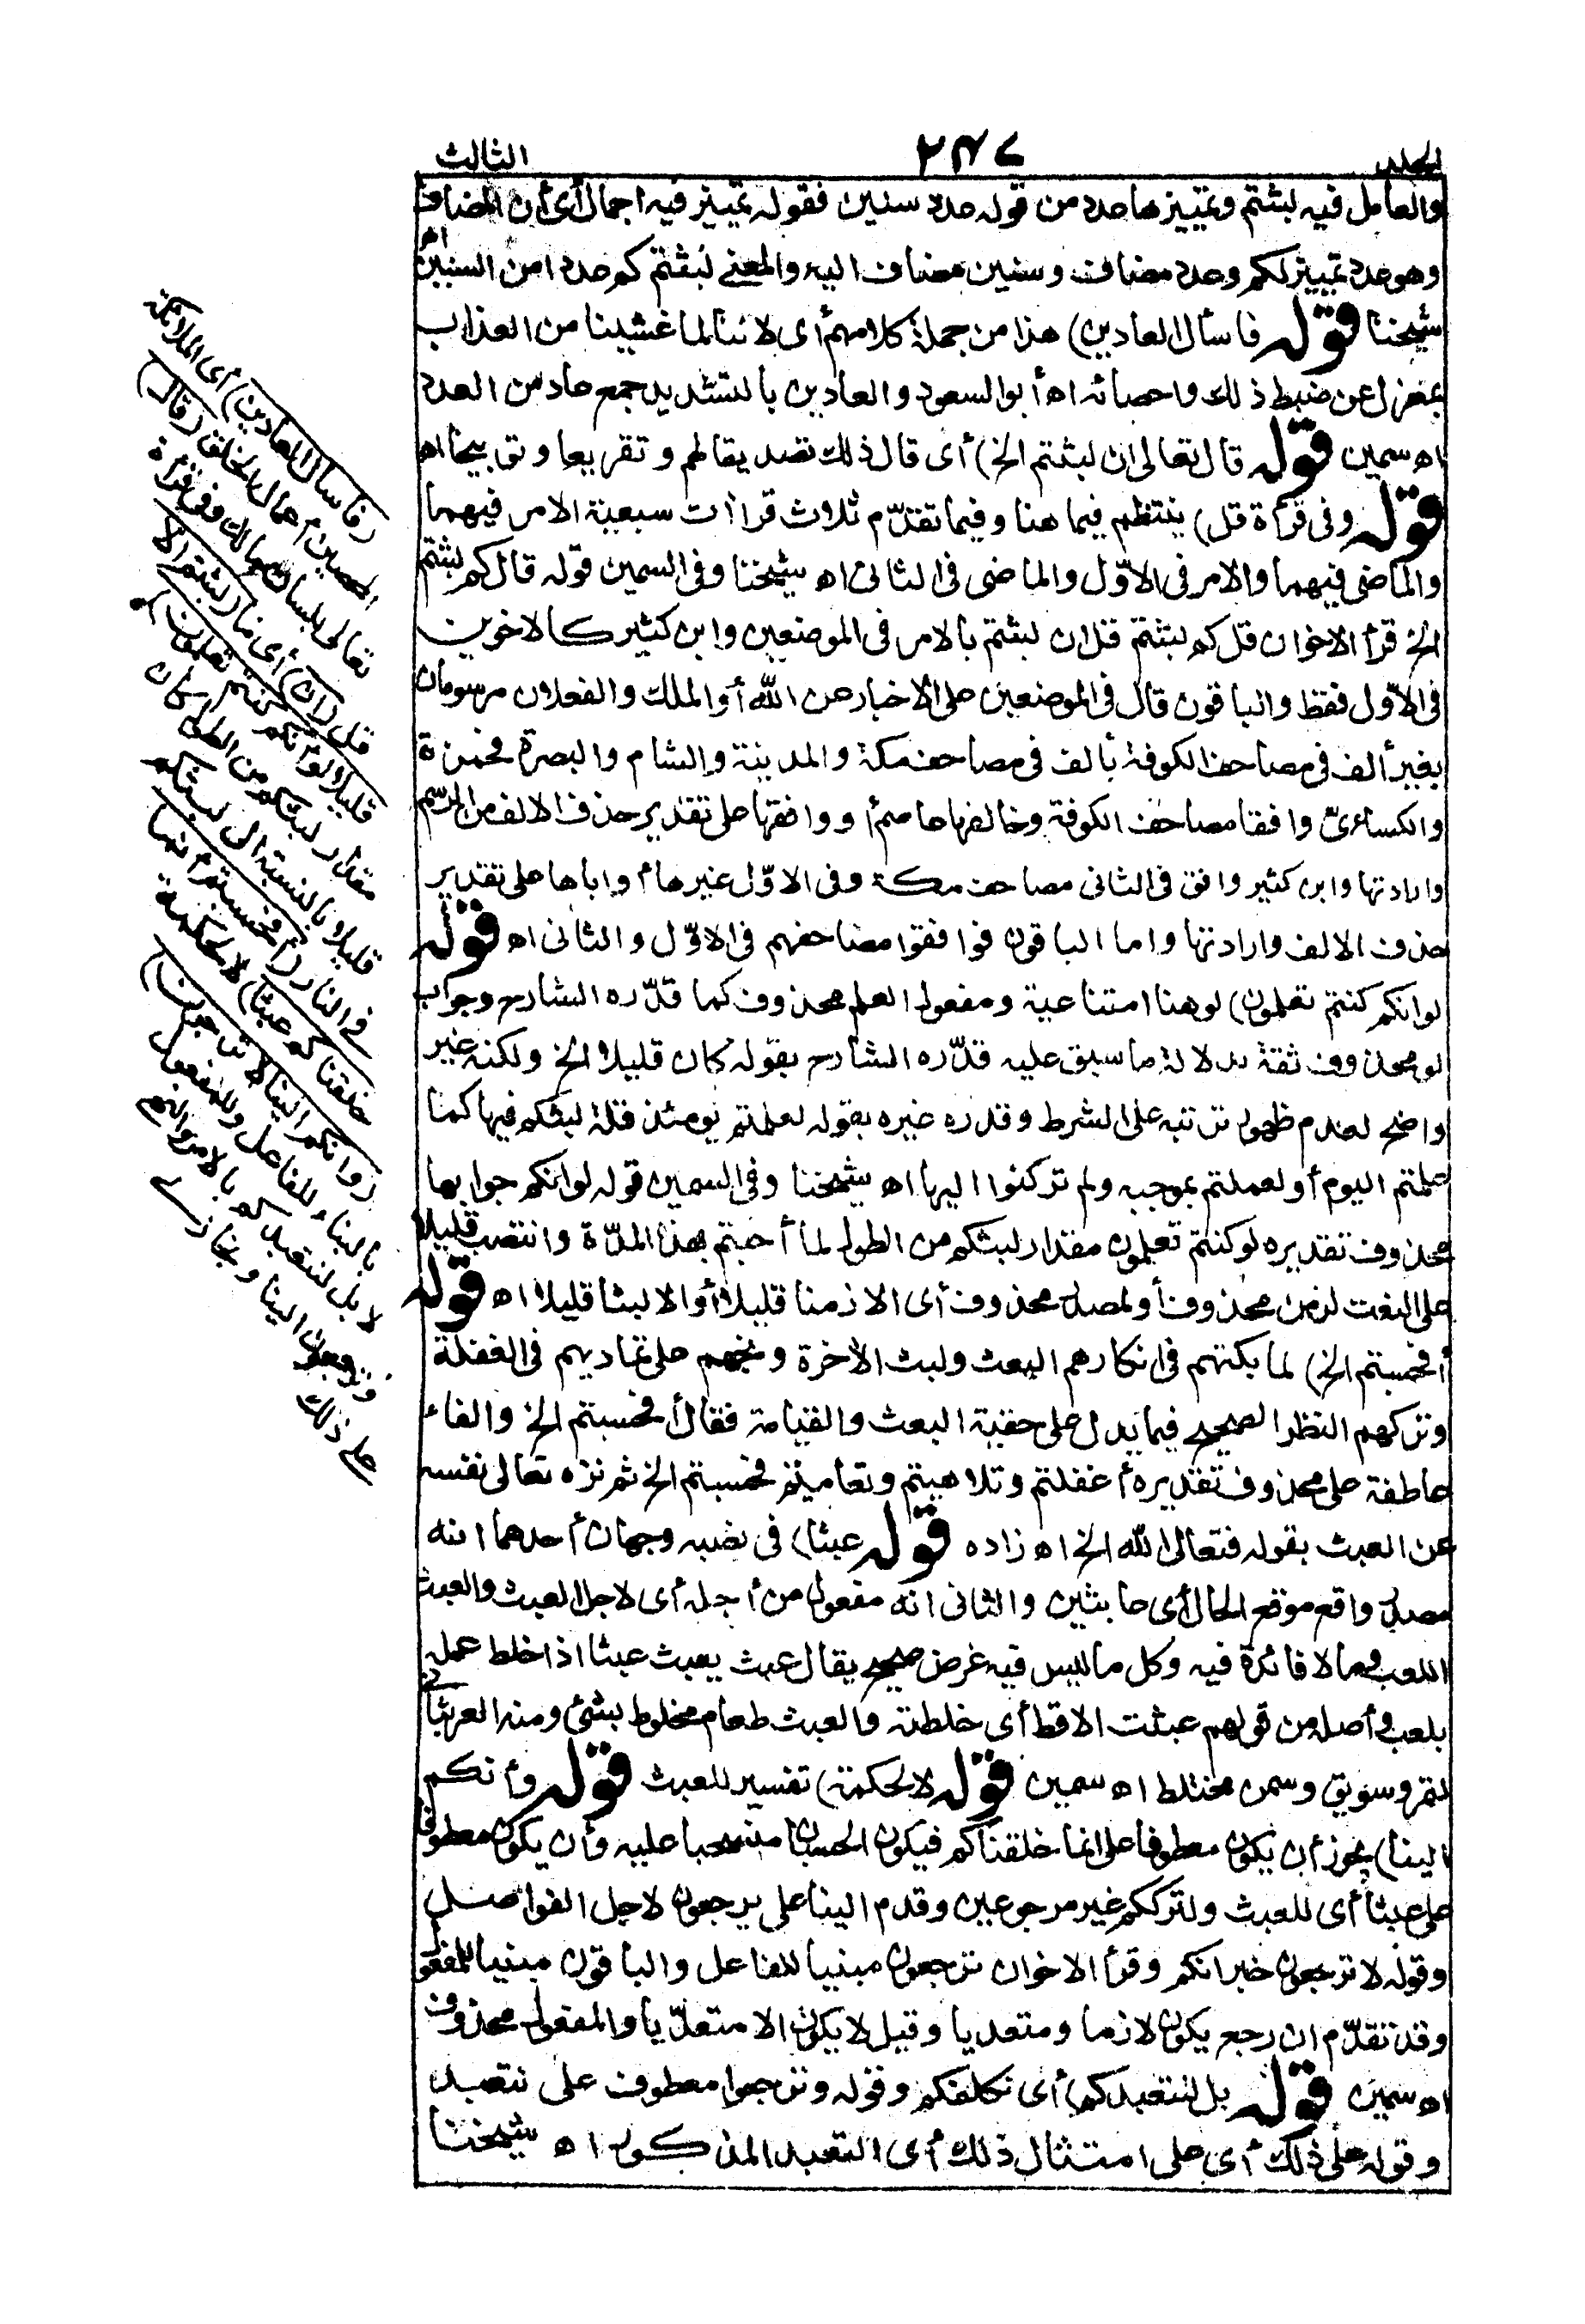 المجلد
٢٤٧
الثالث
والعامل فيه لبثتم وتمييزها عدد من قوله عدد سنين فقوله تمييز فيه اجمال أى أن المضاف
وهو عدد تمييز لكم وعدد مضاف وسنين مضاف اليه والمعنى لبثتم كم عددا من السنين اه
شيخنا قوله فاسأل العادين) هذا من جملة كلامهم أى لاننا لما غشينا من العذاب
بمعزل عن ضبط ذلك واحصائه اه أبو السعود والعادين بالتشديد جمع عاد من العدد
اه سمين قوله قال تعالى ان لبثتم الخ) أى قال ذلك تصديقا لهم وتقريعا وتوبيخا اه
قوله وفى قرأة قل) ينتظم فيما هنا وفيما تقدّم ثلاث قراأت سبعية الامر فيهما
والماضى فيهما والامر فى الاوّل والماضى فى الثانى اه شيخنا وفى السمين قوله قال كم لبثتم
الخ قرأ الاخوان قل كم لبثتم قل ان لبثتم بالامر فى الموضعين وابن كثير كالاخوين
فى الاوّل فقط والباقون قال فى الموضعين على الاخبار عن الله أو الملك والفعلان مرسومان
بغير ألف فى مصاحف الكوفة بألف فى مصاحف مكة والمدينة والشام والبصرة فحمزة
والكسائى وافقا مصاحف الكوفة وخالفها عاصم أو وافقها على تقدير حذف الالف من الرسم
وارادتها وابن كثير وافق فى الثانى مصاحف مكة وفى الاوّل غيرها أو اياها على تقدير
حذف الالف وارادتها واما الباقون فوافقوا مصاحفهم فى الاوّل والثانى اه قوله
لو انكم كنتم تعلمون) لو هنا امتناعية ومفعول العلم محذوف كما قدّره الشارح وجواب
لو محذوف ثقة بدلالة ما سبق عليه قدّره الشارح بقوله كان قليلا الخ ولكنه غير
واضح لعدم ظهور ترتبه على الشرط وقدره غيره بقوله لعلمتم يومئذ قلة لبثكم فيها كما
علمتم اليوم أو لعملتم بموجبه ولم تركنوا اليها اه شيخنا وفى السمين قوله لو انكم جوابها
محذوف تقديره لو كنتم تعلمون مقدار لبثكم من الطول لما أجبتم بهذا المدّة وانتصب قليلا
على النعت لزمن محذوف أو لمصدر محذوف أى الا زمنا قليلا أو الا لبثا قليلا اه قوله
أفحسبتم الخ) لما بكتهم فى انكارهم البعث ولبث الآخرة ونجهم على تماديهم فى الغفلة
وتركهم النظر الصحيح فيما يدل على حقية البعث والقيامة فقال أفحسبتم الخ والفاء
عاطفة على محذوف تقديره أغفلتم وتلاهيتم وتعاميتم فحسبتم الخ ثم نزه تعالى نفسه
عن العبث بقوله فتعالى الله الخ اه زاده قوله عبثا) فى نصبه وجهان أحدهما انه
مصدر واقع موقع الحال أى عابثين والثانى انه مفعول من أجله أى لاجل العبث والعبث
اللعب وما لا فائدة فيه وكل ما ليس فيه غرض صحيح يقال عبث يعبث عبثا اذا خلط عمله
بلعب وأصله من قولهم عبثت الاقط أى خلطته والعبث طعام مخلوط بشئ ومنه العربثانى
لتمر وسويق وسمن مختلط اه سمين قوله لا لحكمة) تفسير للعبث قوله وأنكم
الينا) يجوز أن يكون معطوفا على انما خلقناكم فيكون الحسبان منسحبا عليه وأن يكون معطوفا
على عبثا أى للعبث ولترككم غير مرجوعين وقدم الينا على يرجعون لاجل الفواصل
وقوله لا ترجعون خبر انكم وقرأ الاخوان ترجعون مبنيا للفاعل والباقون مبنيا للمفعول
وقد تقدّم ان رجع يكون لازما ومتعديا وقيل لا يكون الا متعدّيا والمفعول محذوف
اه سمين قوله بل لنتعبدكم) أى نكلفكم وقوله وترجعوا معطوف على نتعبد
وقوله على ذلك أى على امتثال ذلك أى التعبد المذكور اه شيخنا
(فاسأل العادين) أى الملائكة
المحصين أعمال الخلق (قال)
تعالى بلسان مالك وفى قرأة
قل (ان) أى ما (لبثتم الا
قليلا لو أنكم كنتم تعلمون)
مقدار لبثكم من الطول كان
قليلا بالنسبة الى لبثكم
فى النار (أفحسبتم أنما
خلقناكم عبثا) لا لحكمة
(وانكم الينا لا ترجعون)
بالبناء للفاعل وللمفعول
لا بل لنتعبدكم بالامر والنهى
وترجعون الينا ونجازى
على ذلك